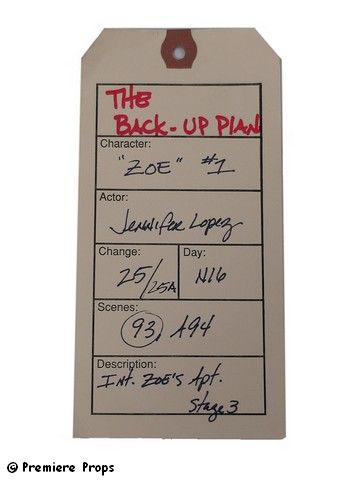 THE
BACK-UP PLAN
Character:
"ZOE" #1
Actor:
Jennifer Lopez
Change: Day:
25/25A N16
Scenes:
93, A94
Description:
Int. ZOE'S Apt.
Stage 3
© Premiere Props